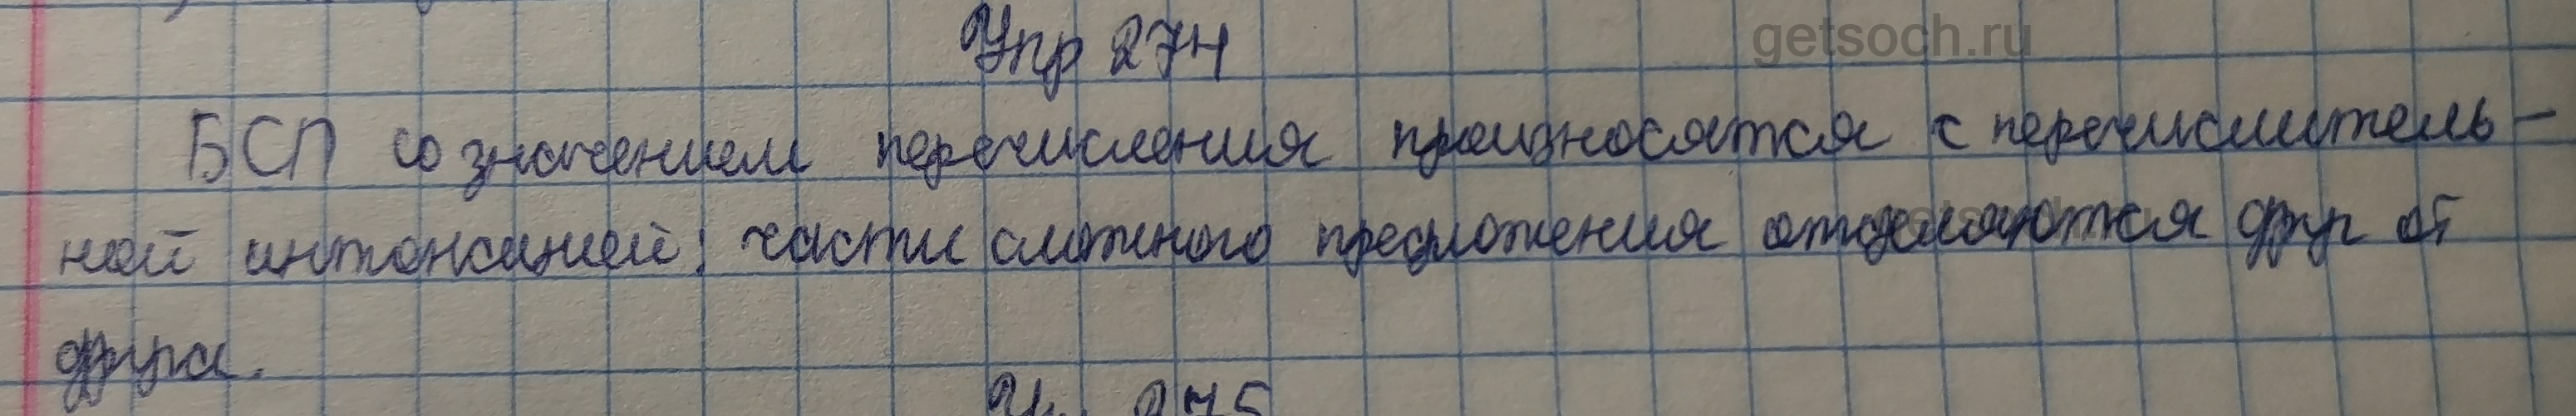 getsoch.ru
Упр 274
БСП со значением перечисления произносятся с перечислитель-
ной интонацией; части сложного предложения отделяются друг от
друга.
Упр 275